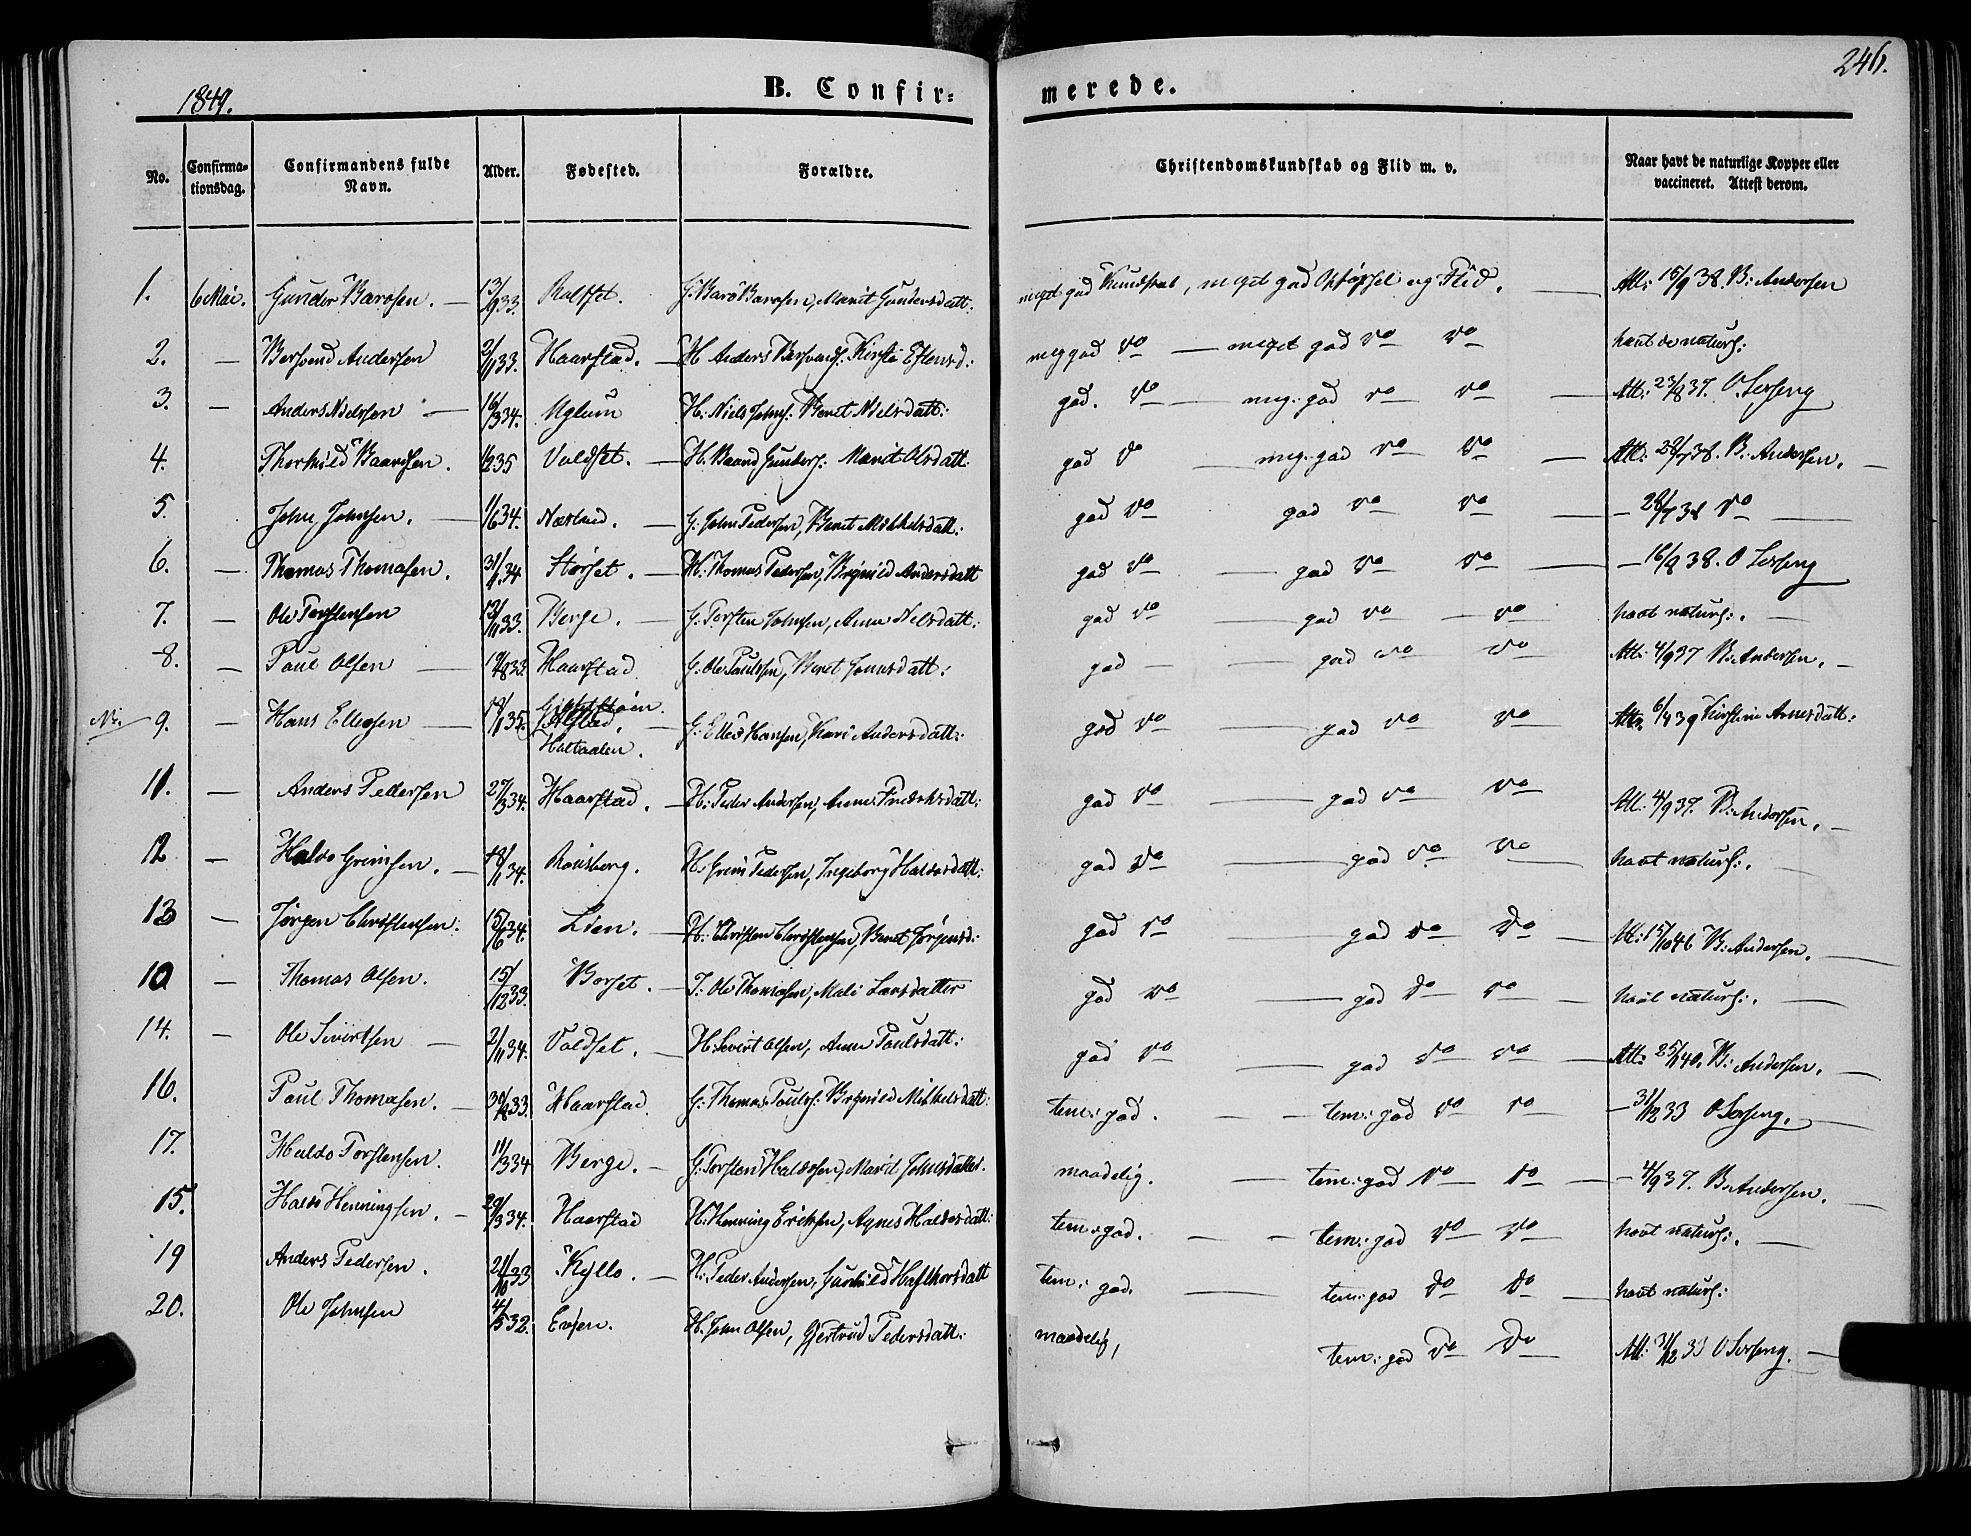 246.
1849. B. Confir= merede.
No. Confirma-tionsdag. Confirmandens fulde Navn. Alder. Fødested. Forældre. Christendomskundskab og Flid m. v. Naar havt de naturlige Kopper eller vaccineret. Attest derom.
1. 6 Mai. Gunder Baarsen. — 13/9 33. Rolset. G: Baar Baarsen, Marit Gundersdatt: meget god Kundskab, meget god Opførsel og Flid. — Att: 15/9 38. B: Andersen
2. — Bersvend Andersen 2/11 33. Haarstad. — H Anders Bersvends: Kirsti Estensd: meg god do — meget god do do havt de naturl:
3. — Anders Nielssen — 16/3 34. Uglum H: Niels Johns: Beret Nielsdatt: god. do — meg: god do do — Att: 23/8 37. O Serseng
4. — Thorkild Baardsen. 1/2 35 Voldset. — H. Baard Gunders: Marit Olsdatt: god do — meg: god do do — Att: 28/7 38. B. Andersen. —
5. John Johnsen. — 1/6 34. — G: John Pedersen, Beret Mikkelsdatt: god do god do do — 28/7 38 do —
6. — Thomas Thomasen. 31/1 34 Storset. — H: Thomas Pedersen, Brynild Andersdatt god do — god do do — 16/8 38. O Serseng
7. — Ole Torstensen 13/11 33. Berge. — G. Torsten Johnsen, Anne Nelsdatt: god do — god do do havt naturl:. —
8. — Paul Olsen — 19/8 33. Haarstad G: Ole Paulsen, Beret Jonsdatt: god — — god do do Att: 4/9 37 B: Andersen. —
9. — Hans Ellefsen — 18/1 35. Holtaalen. G: Elles Hansen, Kari Andersdatt: god do god do do Att. 6/4 39 Kirstine Arnesdatt:
11. — Anders Pedersen 27/3 34. Haarstad. — H: Peder Andersen, Anne Fredriksdatt: god do — god do do Att: 4/9 37. B: Andersen. —
12 — Haldo Grimsen. — 18/1 34. Rønsberg. H. Grim Pedersen, Ingeborg Haldorsdatt: god do — god do do havt naturl:. —
13 — Jørgen Christensen. 15/6 34. Lien. — H: Christen Christensen, Beret Jørgensd: god do god do do — Att: 15/10 46 B: Andersen. —
10 — Thomas Olsen. 15/12 33. Borset. — I: Ole Thomasen, Mali Larsdatter god do — god do do — havt naturl:. —
14. — Ole Sivertsen — 2/11 34. Voldset. — H: Sivert Olsen, Anne Paulsdatt: god do — god do do — Att: 25/1 40. B: Andersen. —
16. Paul Thomasen. — 30/8 33. Haarstad. G: Thomas Pauls: Brynild Mikkelsdatt: tem: god. — — tem: god do do — 31/12 33 O Serseng. —
17. Haldo Torstensen. 11/3 34 Berge. — G: Torsten Haldosen, Marit Johnsdatter. maadelig. — tem: god do do — 4/9 37. B: Andersen. —
15. Haldo Henningsen. — 29/3 34. Haarstad H: Henning Eriksen, Agnes Haldosdatt: tem: god. — — tem: god do do havt naturl:. —
19 Anders Pedersen. 21/10 33 Kyllo. — H: Peder Andersen, Gunhild Hafthorsdatt tem: god. — tem: god do do — havt naturl:
20. Ole Johnsen 4/5 32. Evjen. H. John Olsen, Gjertrud Pedersdatt: maadelig, tem: god do do Att: 31/12 33 O Serseng. —